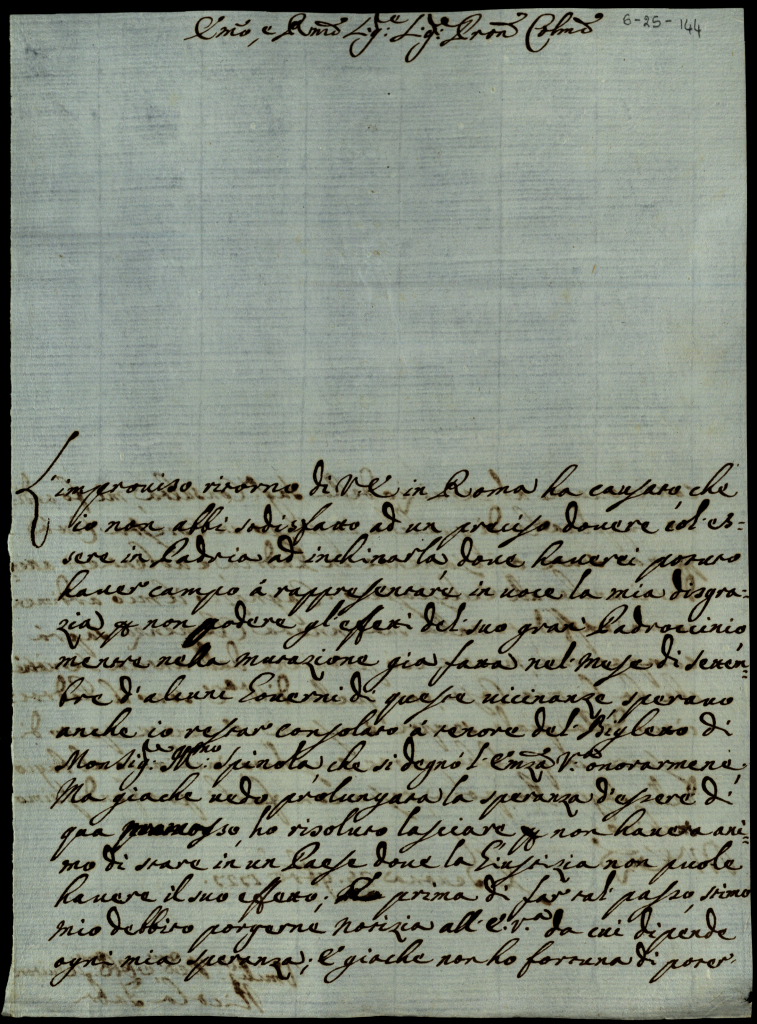 Emo, e Rmo Sig:e Sig:e Pron Colmo
6-25-144
L'improuiso ritorno di V.E. in Roma ha causato che
io non abbi sodisfatto ad un preciso douere col es=
sere in Padria ad inchinarla doue hauerei potuto
hauer campo á rappresentare in uoce la mia disgra=
zia p non godere gl'effetti del suo gran Padroccinio
mentre nella mutazione gia fatta nel Mese di Settem=
bre d'alcuni Gouerni di queste uicinanze sperauo
anche io restar consolato á tenore del Biglietto di
MonSig:re Mmo: Spinola che si degnó l'Emza V: onorarmene.
Ma giache uedo prolungata la speranza d'essere di
qua promosso, ho risoluto lasciare p non hauer ani=
mo di stare in un Paese doue la Giustizia non puole
hauere il suo effetto; prima di far tal passo, stimo
mio debbito porgerne notizia all'E.V.a da cui dipende
ogni mia speranza; E giache non ho fortuna di poter